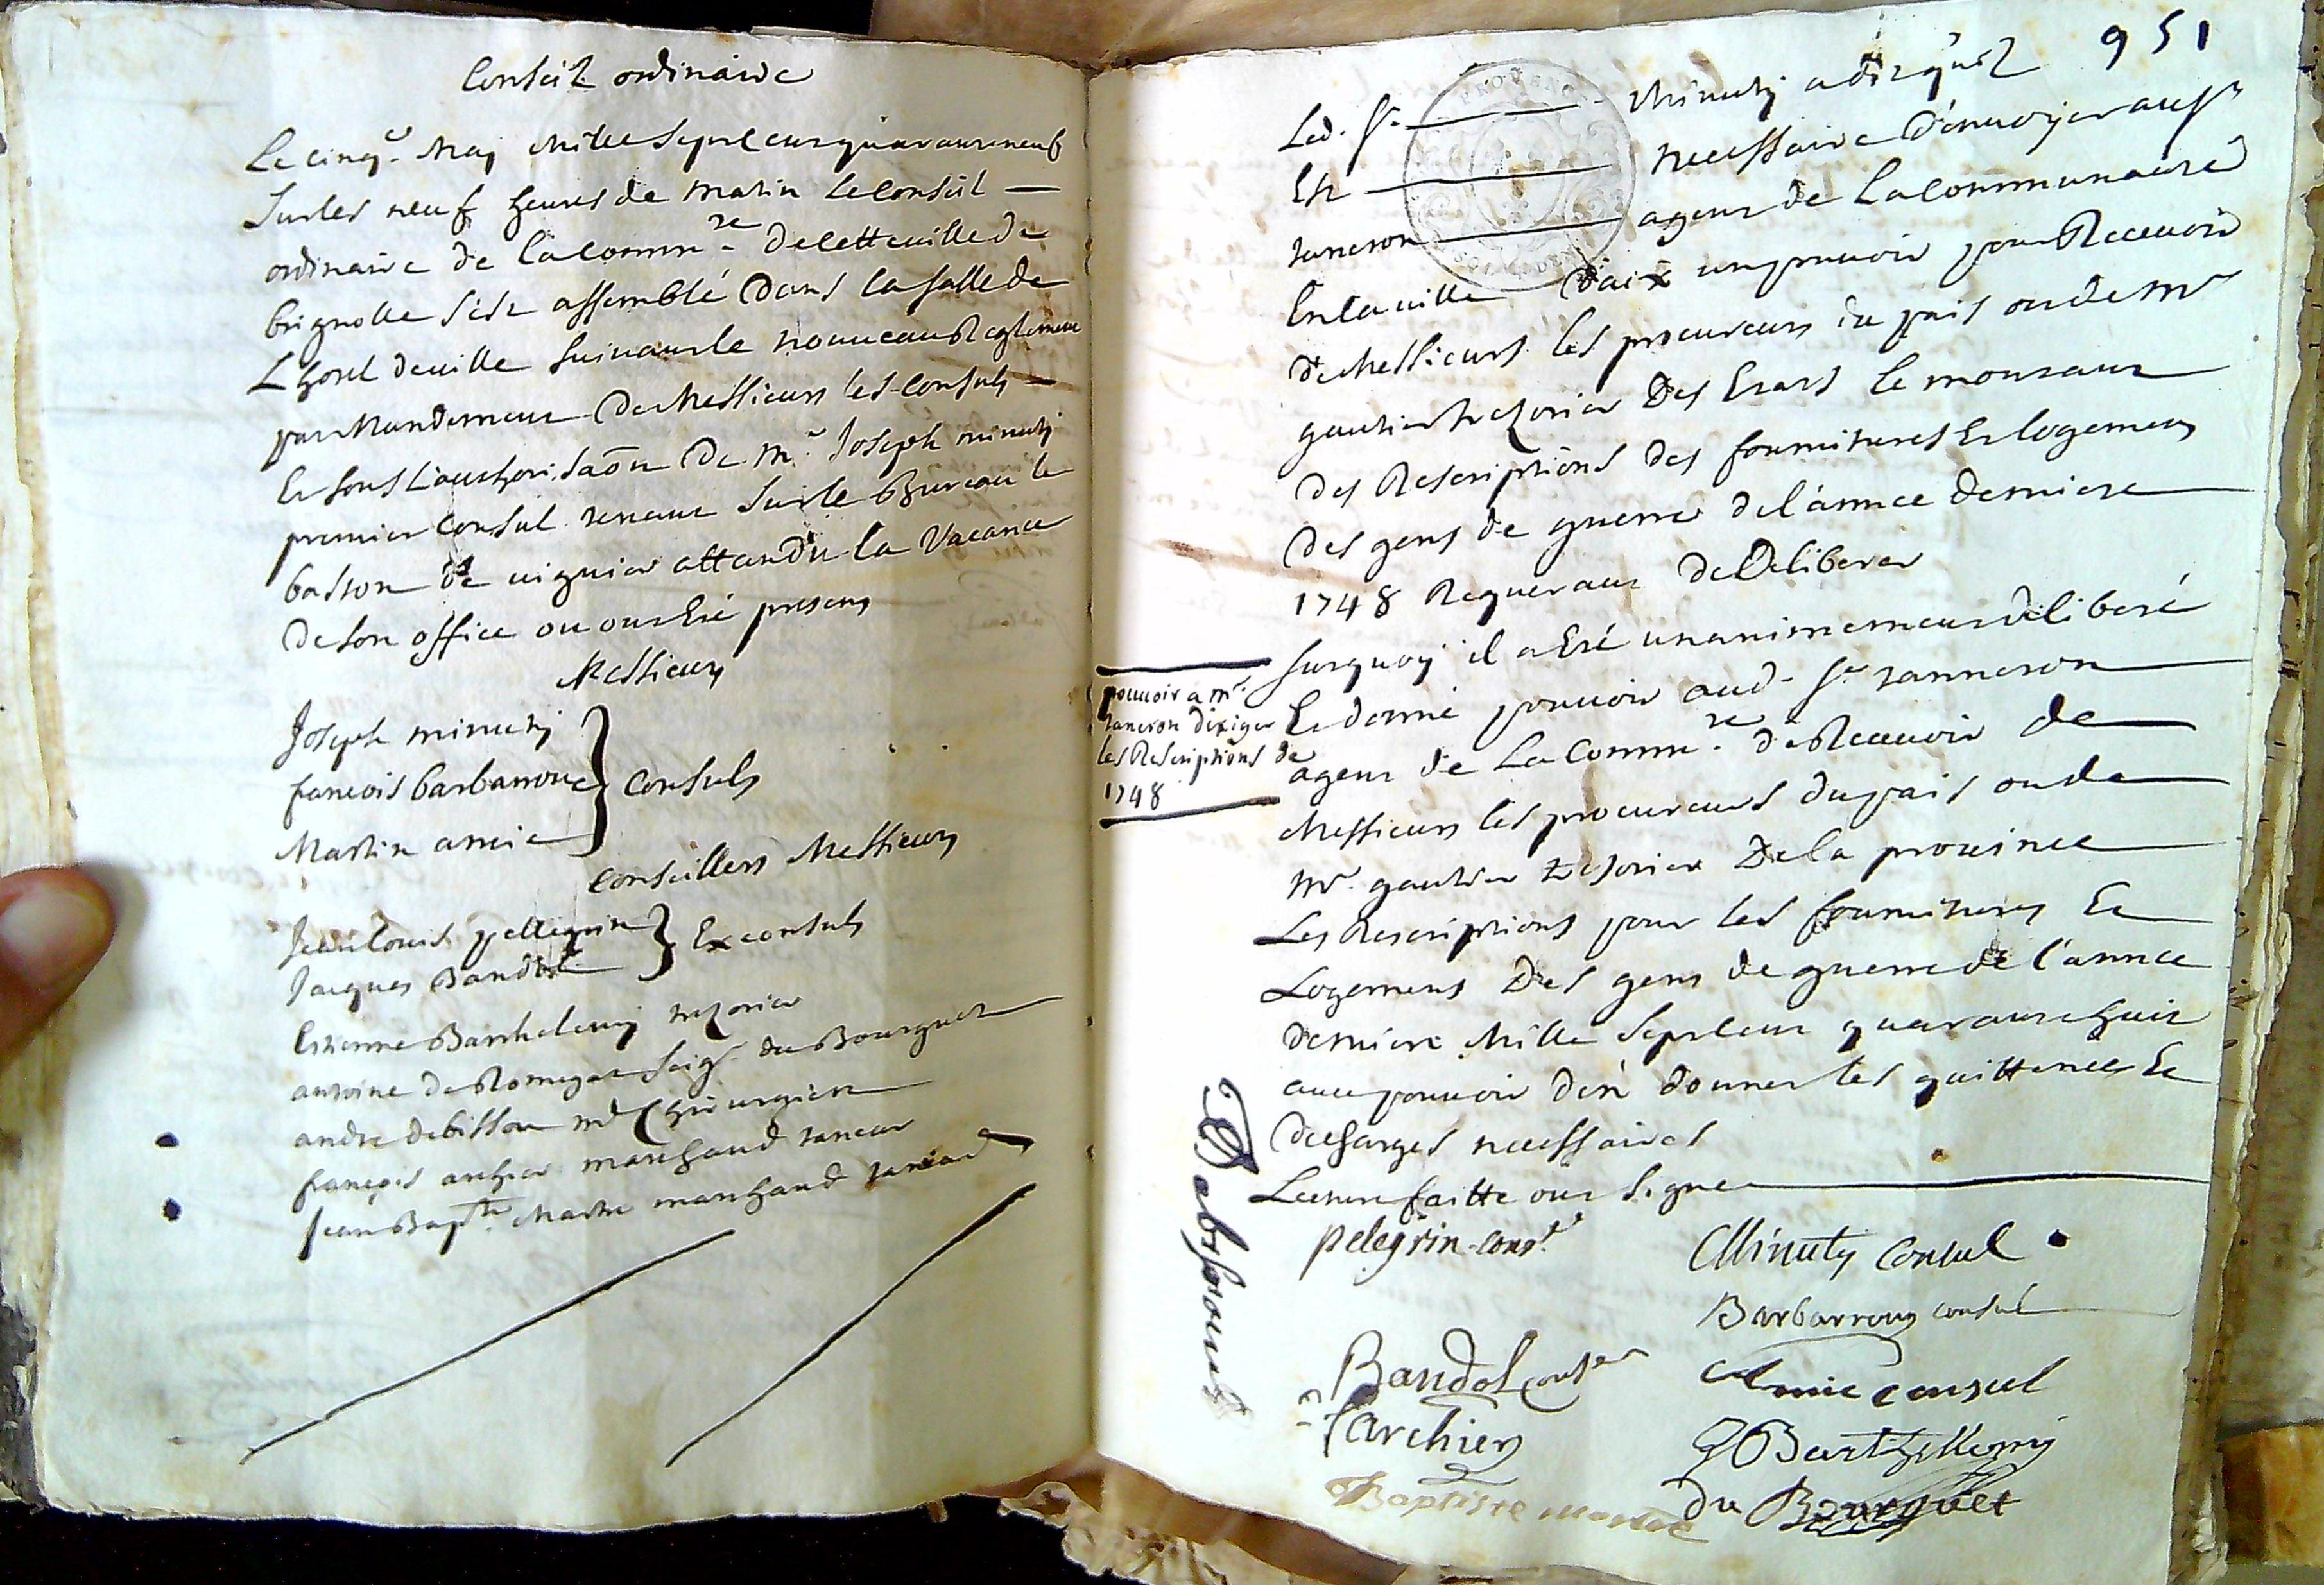 Conseil ordinaire
Le cinqe. May Mille Sept cens quarante neuf
Sur les neuf heures de matin Le Conseil
ordinaire de La Comm.te de cette ville de
brignolle s'est assemblé dans La salle de
L'hotel de ville suivant le nouveau Reglement
par Mandement de Messieurs les Consuls
Et sous L'authorisaôn de Mr. Joseph minuty
premier Consul tenant sur le Bureau le
baston de viguier attandu la Vacance
de son office ou ont Eté presens
Messieurs
Joseph minuty
francois barbarroux Consuls
Martin amic
Conseillers Messieurs
Jean louis pellegrin Exconsuls
Jacques Bandol
Estienne Barthelemy trezorier
antoine de Romegat seigr. du Bourguet
andré debisson md Chirurgien
françois archier marchand taneur
Jean Bapte. Martre marchand taneur
951
Led. Sr. Minuty a dit qu'il
Est necessaire d'envoyer au sr
tanneron agent de La Communauté
En la ville d'aix un pouvoir pour Recevoir
de Messieurs les procureurs du pais ou de Mr
gautier trezorier des Etats le montant
des Rescriptions des fournitures Et logemens
des gens de guerre de l'année derniere
1748 Requerant de Deliberer
pouvoir a mr.
taneron d'exiger
les Rescriptions de
1748
Surquoy il a Eté unanimement deliberé
Et donné pouvoir aud. Sr tanneron
agent de La Comm.te de Recevoir de
Messieurs les procureurs du pais ou de
Mr. gautier trezorier de la province
Les Rescriptions pour les fournitures Et
Logemens des gens de guerre de l'année
derniere Mille Sept cent quarante huit
avec pouvoir d'en donner les quittances Et
decharges necessaires
Lecture faitte ont signé
pelegrin consr
Minuty Consul
Barbarroux consul
Bandol conser
Amic consul
f archier
E Barthellemy
Baptiste martre
du Bourguet